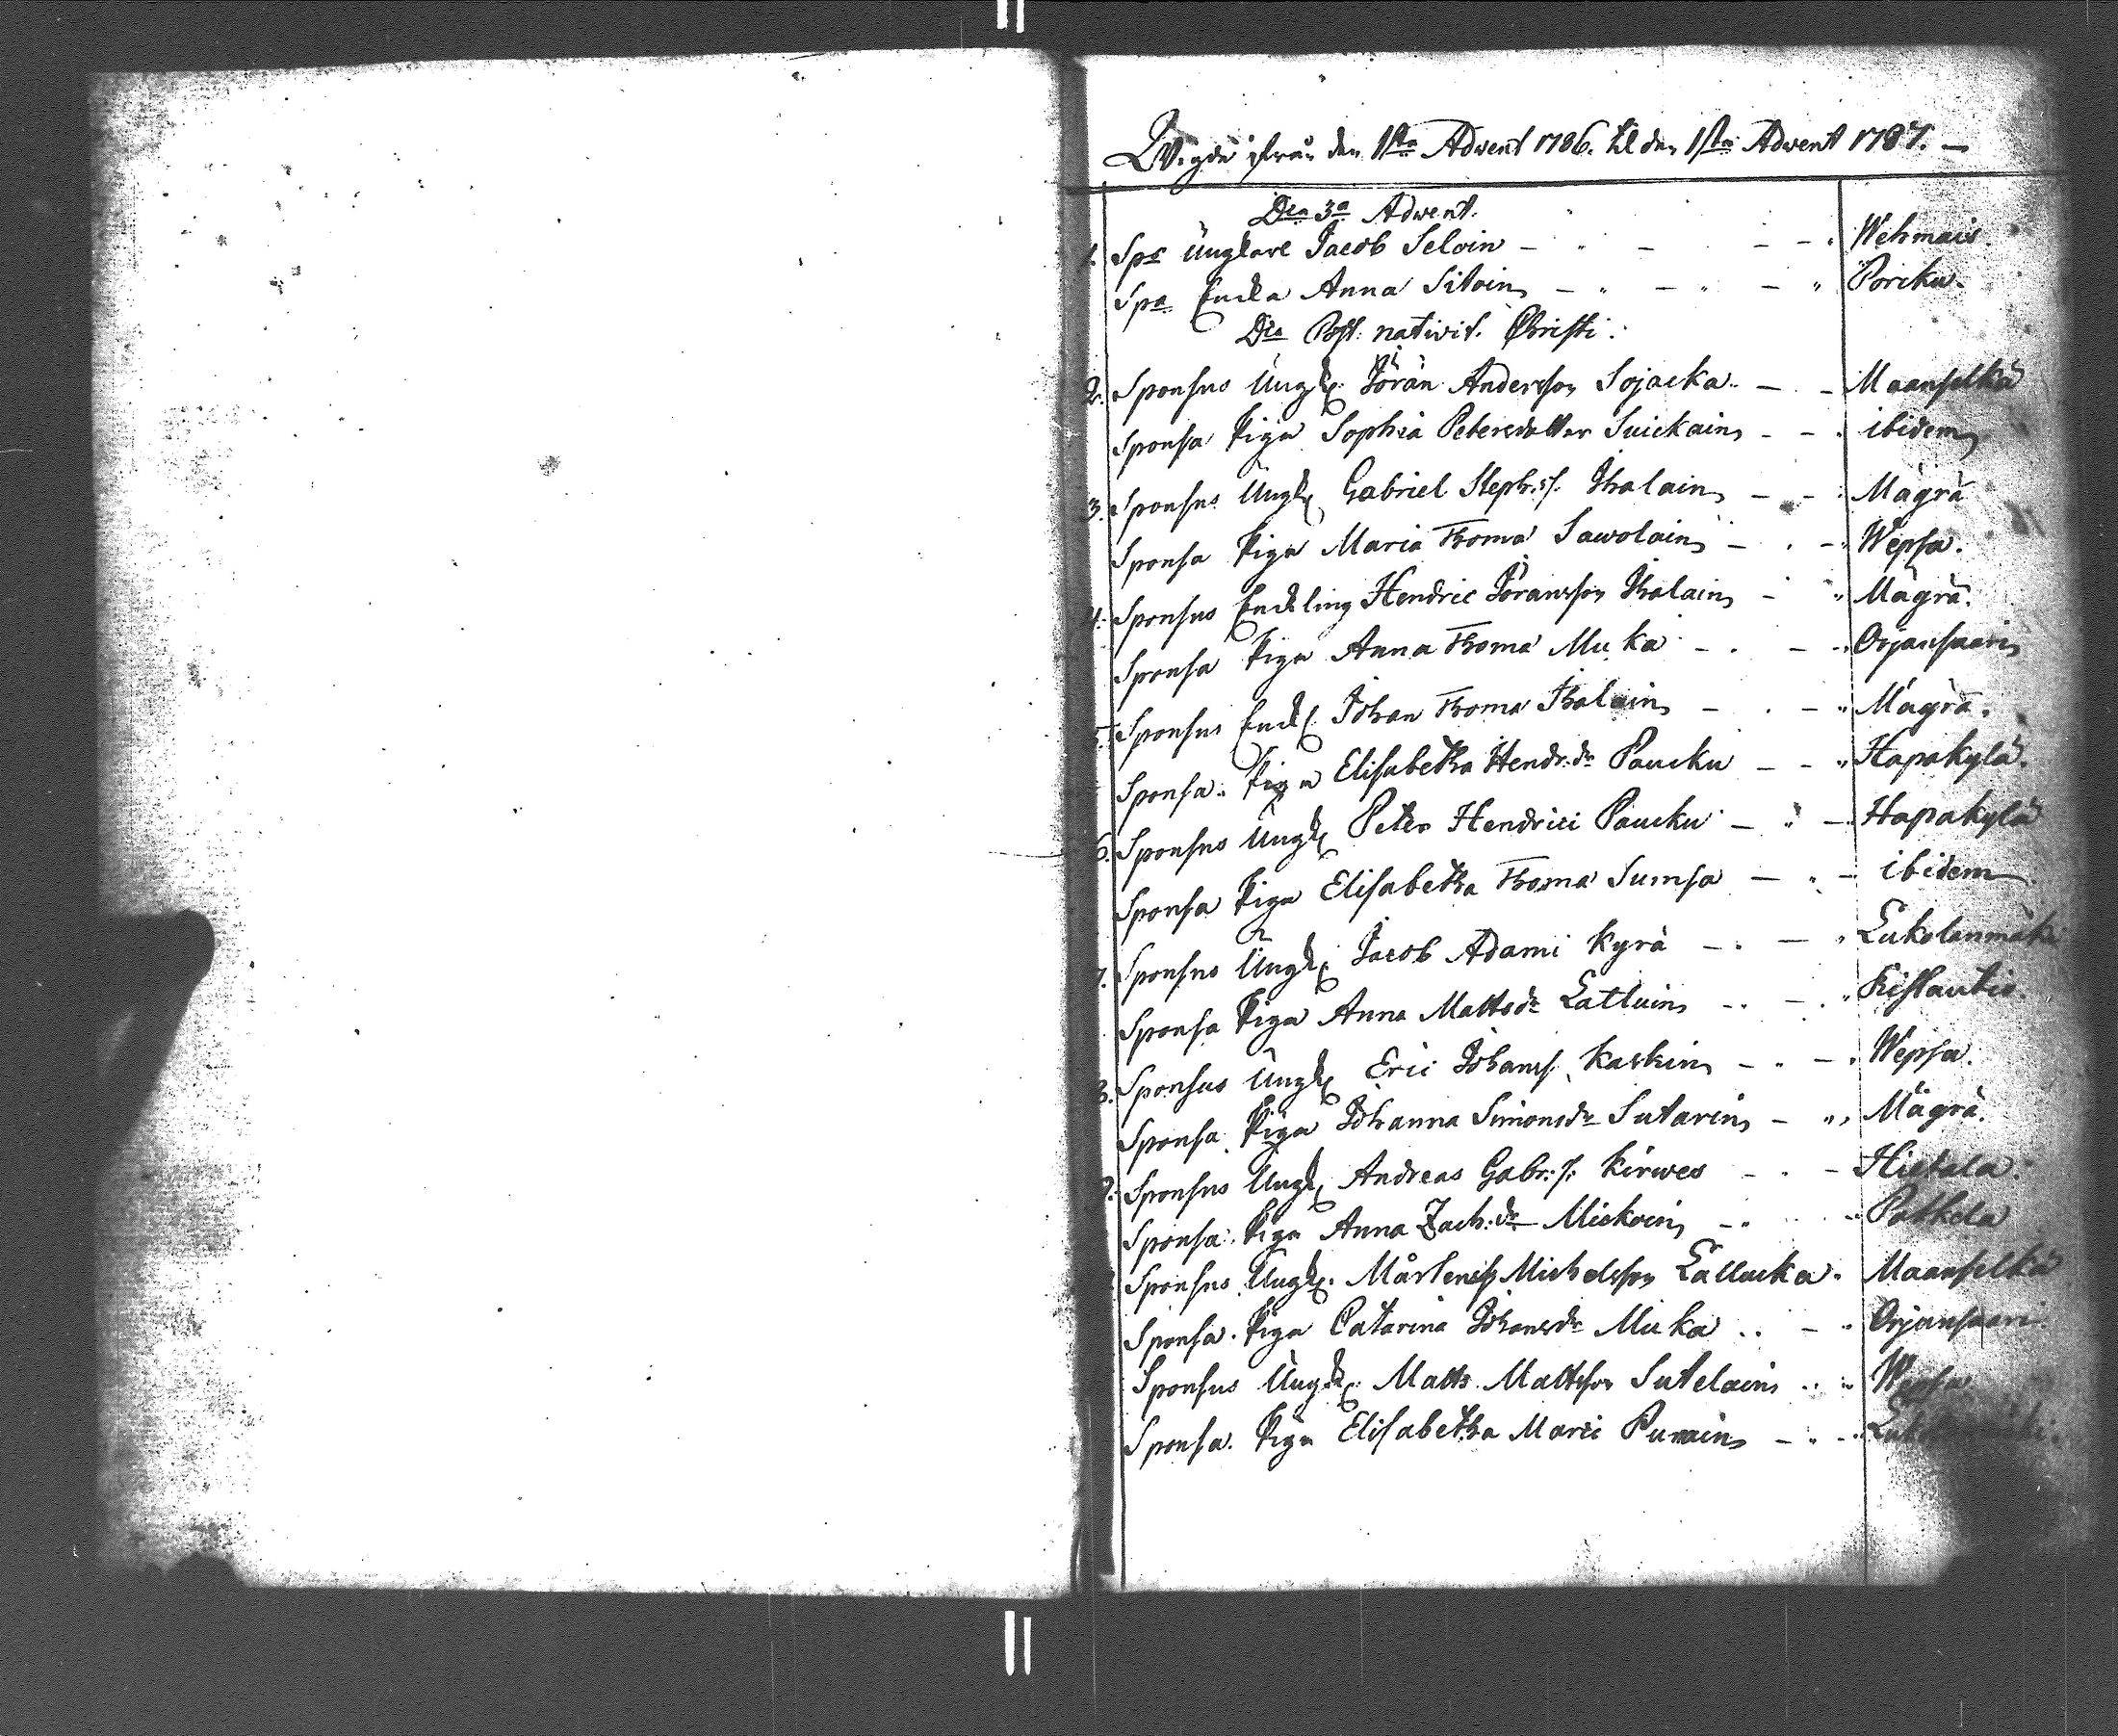 Wigde ifrån den 1sta Advent 1786. til den 1sta Advent 1787. —
Die 3a Adwent.
1. Sps Ungkarl Jacob Seloin — Wehmais.
Spa Encka Anna Sitoin — Poricku.
Die Post. nativit. Christi.
2. Sponsus Ungk. Jörän Andersson Sojacka — Maanselkä
Sponsa Piga Sophia Petersdotter Suickain — ibidem
3. Sponsus Ungk. Gabriel Steph:s. Ihalain — Mägrä
Sponsa Piga Maria Thomæ Sawolain — Wepsa.
4. Sponsus Enckling Hendric Jöransson Ihalain — Mägrä.
Sponsa Piga Anna Thomæ Muka — Orjansaari
5. Sponsus Enckl. Johan Thomæ Ihalain — Mägrä.
Sponsa Piga Elisabetha Hendr:dr Paucku — Hapakylä.
6. Sponsus Ungk. Peter Hendrici Paucku — Hapakylä
Sponsa Piga Elisabetha Thomæ Sumsa — ibidem
7. Sponsus Ungk. Jacob Adami Kyrä — Lukolanmäki
Sponsa Piga Anna Mattsdr Latluin — Ristautio.
8. Sponsus Ungk. Eric Johans. Karhin — Wepsa.
Sponsa Piga Johanna Simonsdr Sutarin — Mägrä.
9. Sponsus Ungk. Andreas Gabr:s. Kirwes — Hietala.
Sponsa Piga Anna Zach:dr Mickoin — Potkela
Sponsus Ungk. Mårten Michelsson Lallucka. Maanselkä
Sponsa Piga Catarina Johansdr Muka — Orjansaari
Sponsus Ungk. Matts Mattsson Sutelain Wepsa
Sponsa Piga Elisabetha Marci Purain —